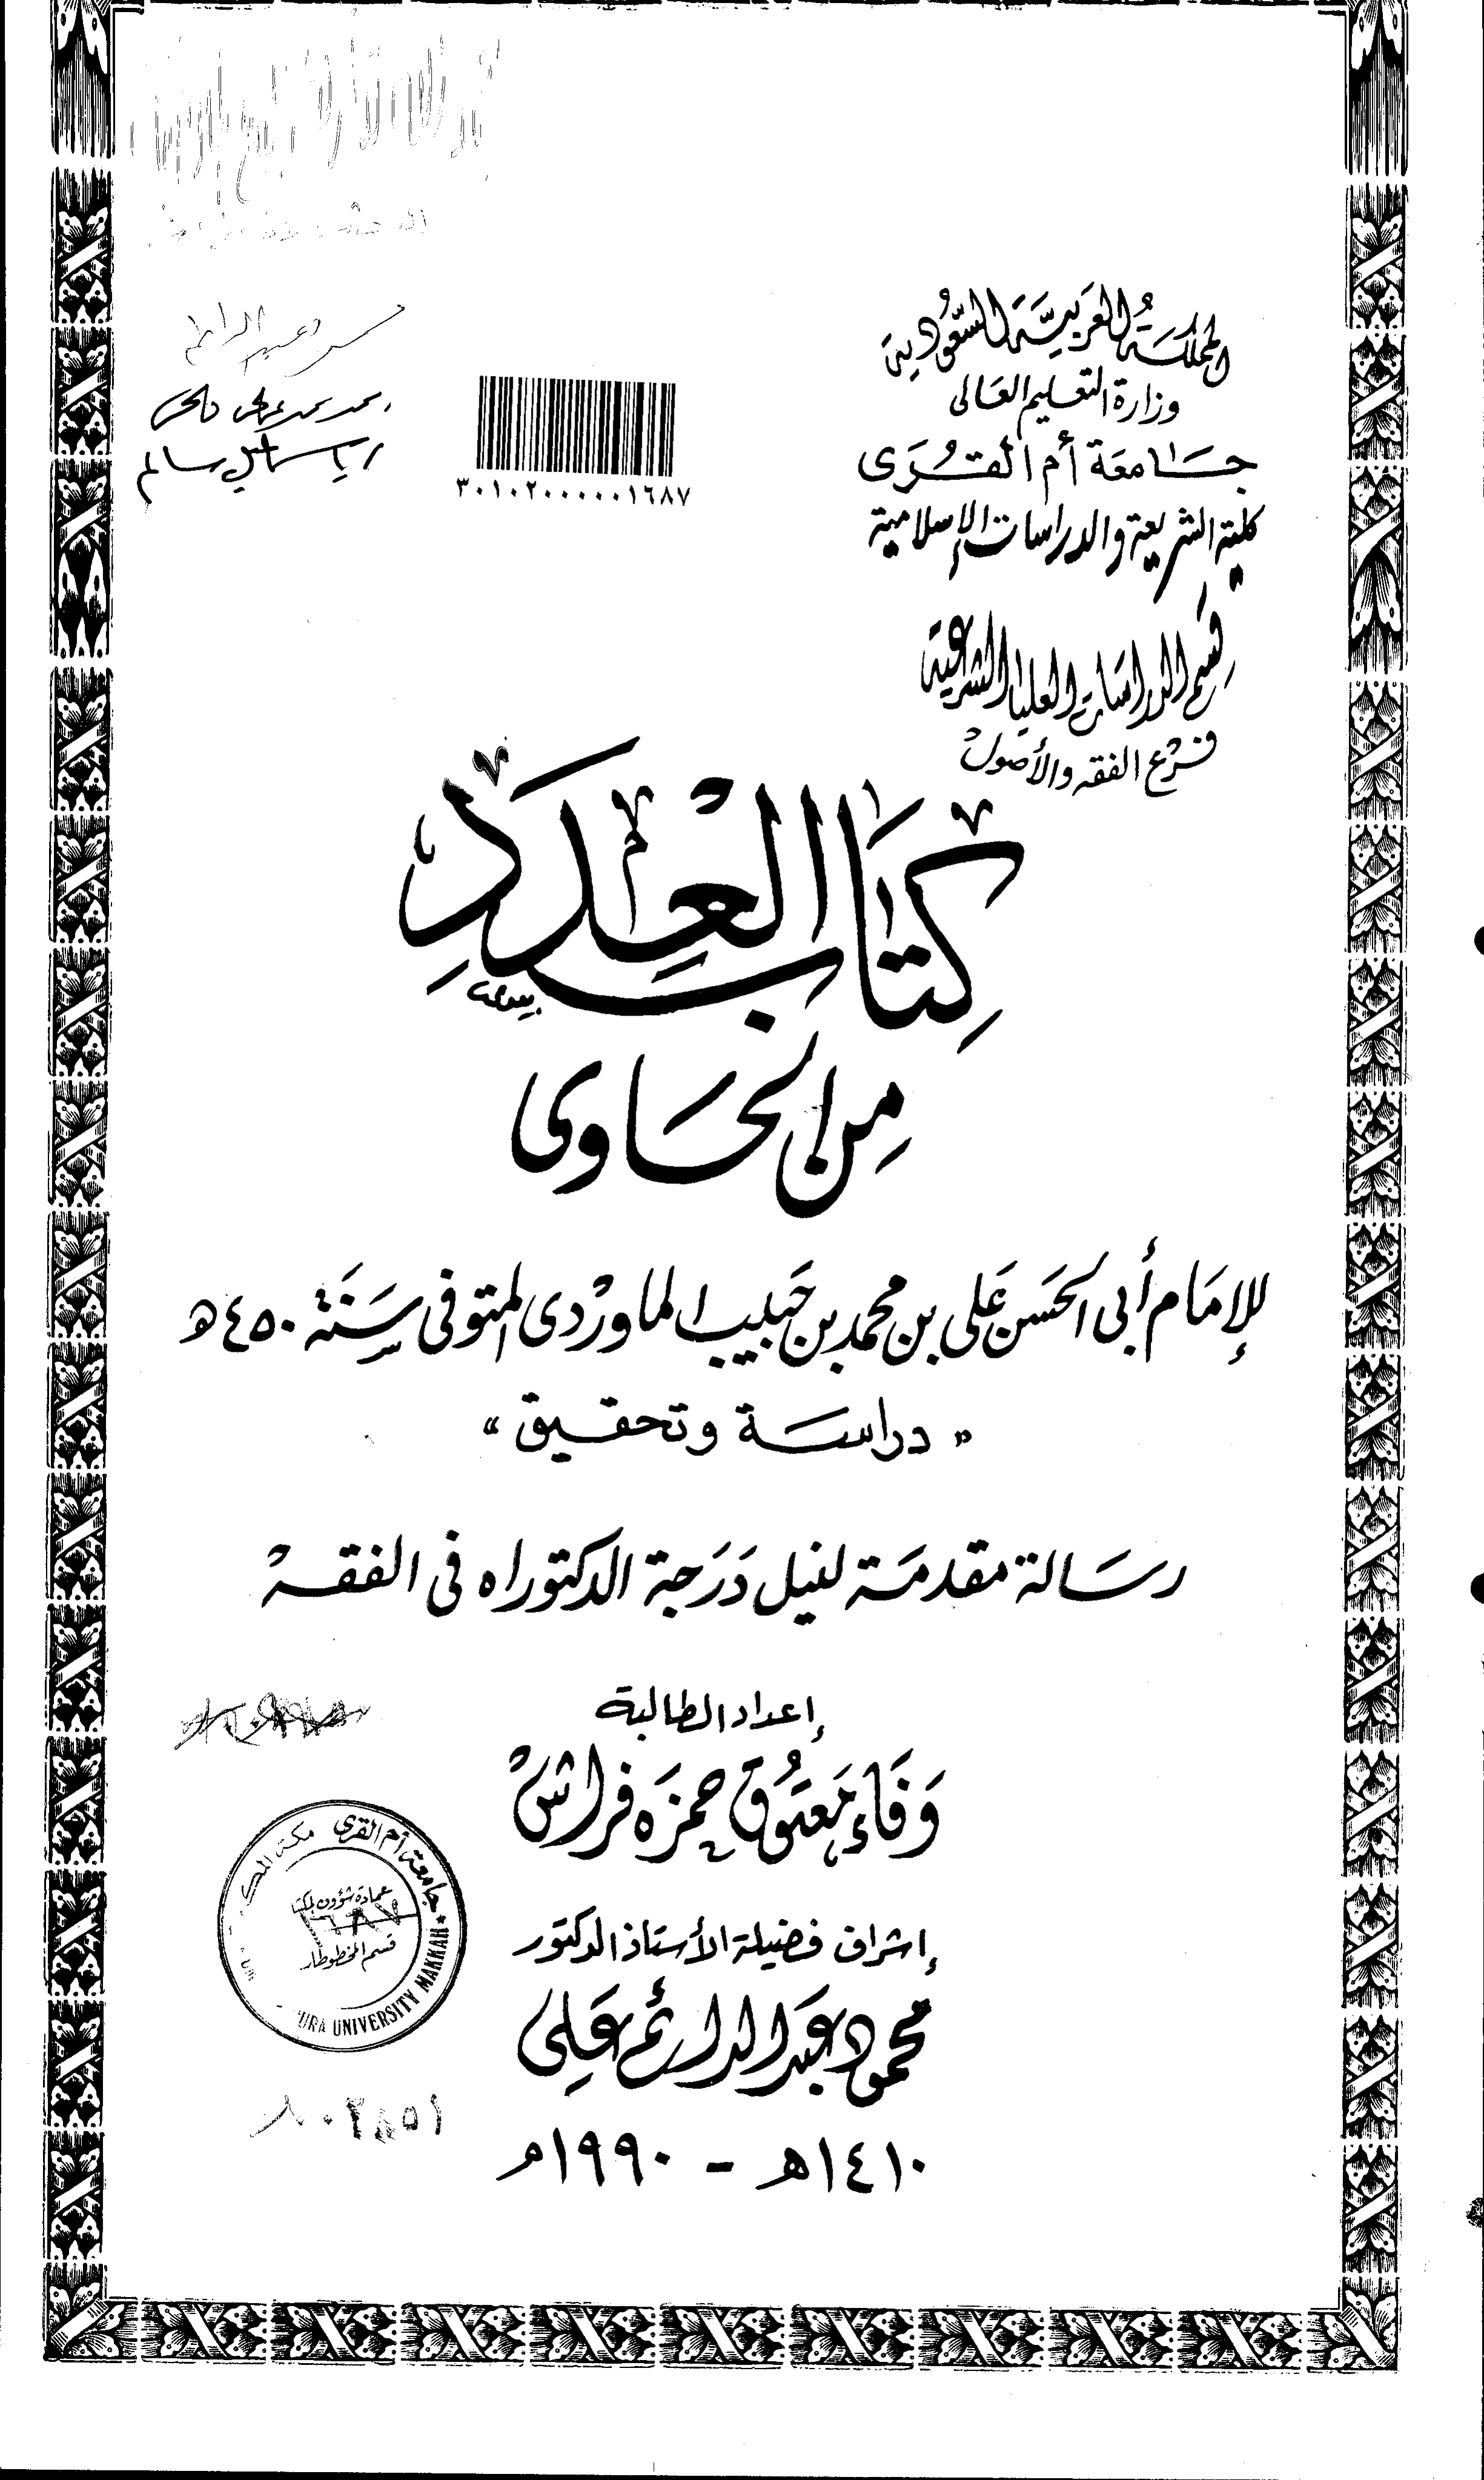 المملكة العربية السعودية
وزارة التعليم العالى
جامعة أم القرى
كلية الشريعة والدراسات الإسلامية
قسم الدراسات العليا الشرعية
فرع الفقه والأصول
٣٠١٠٢٠٠٠٠٠١٦٨٧
كِتَابُ العِدَدِ
مِن الحَاوى
للإمَام أبى الحَسَن عَلى بن محمد بن حَبيب الماوردى المتوفى سَنَة ٤٥٠هـ
"دراسة وتحقيق"
رسَالة مقدمَة لنيل دَرَجة الدكتوراه فى الفقه
إعداد الطالبة
وَفَاء مَعتُوق حمزَه فراش
إشراف فضيلة الأستاذ الدكتور
محمود عَبد الدائم عَلى
١٤١٠هـ - ١٩٩٠م
جامعة أم القرى مكة
عمادة شؤون
١٦٨٧
قسم
URA UNIVERSITY MAKKAH